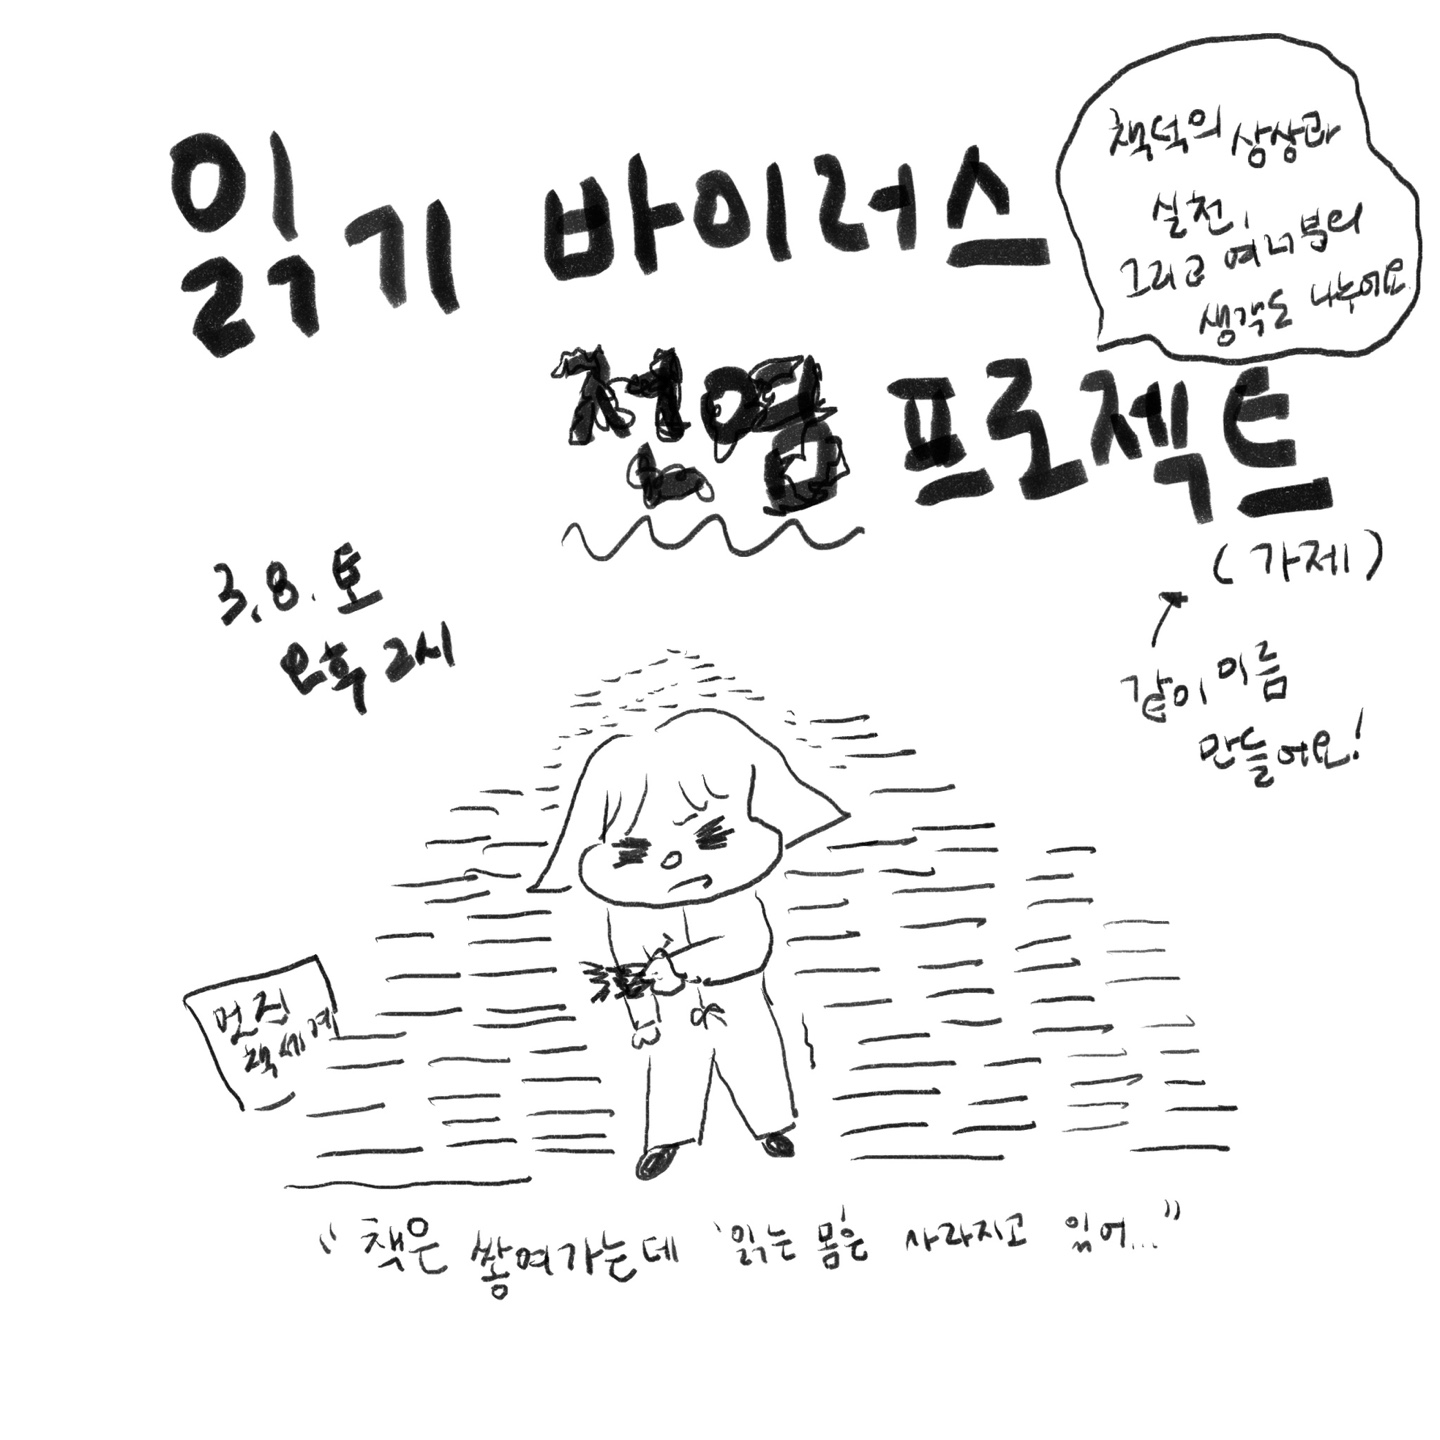 읽기 바이러스
전염 프로젝트
(가제)
같이 이름
만들어요!
책덕의 상상과
실천,
그리고 여러분의
생각도 나누어요
3.8. 토
오후 2시
먼지
책세계
“책은 쌓여가는데 '읽는 몸'은 사라지고 있어...”